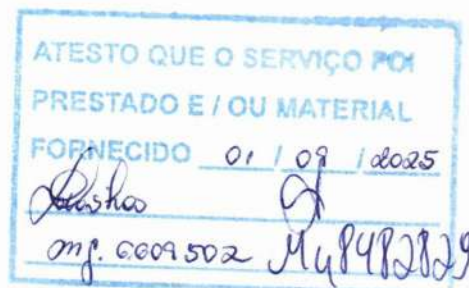 ATESTO QUE O SERVIÇO FOI
PRESTADO E / OU MATERIAL
FORNECIDO 01 / 09 / 2025
mg. 6609502 My8482829